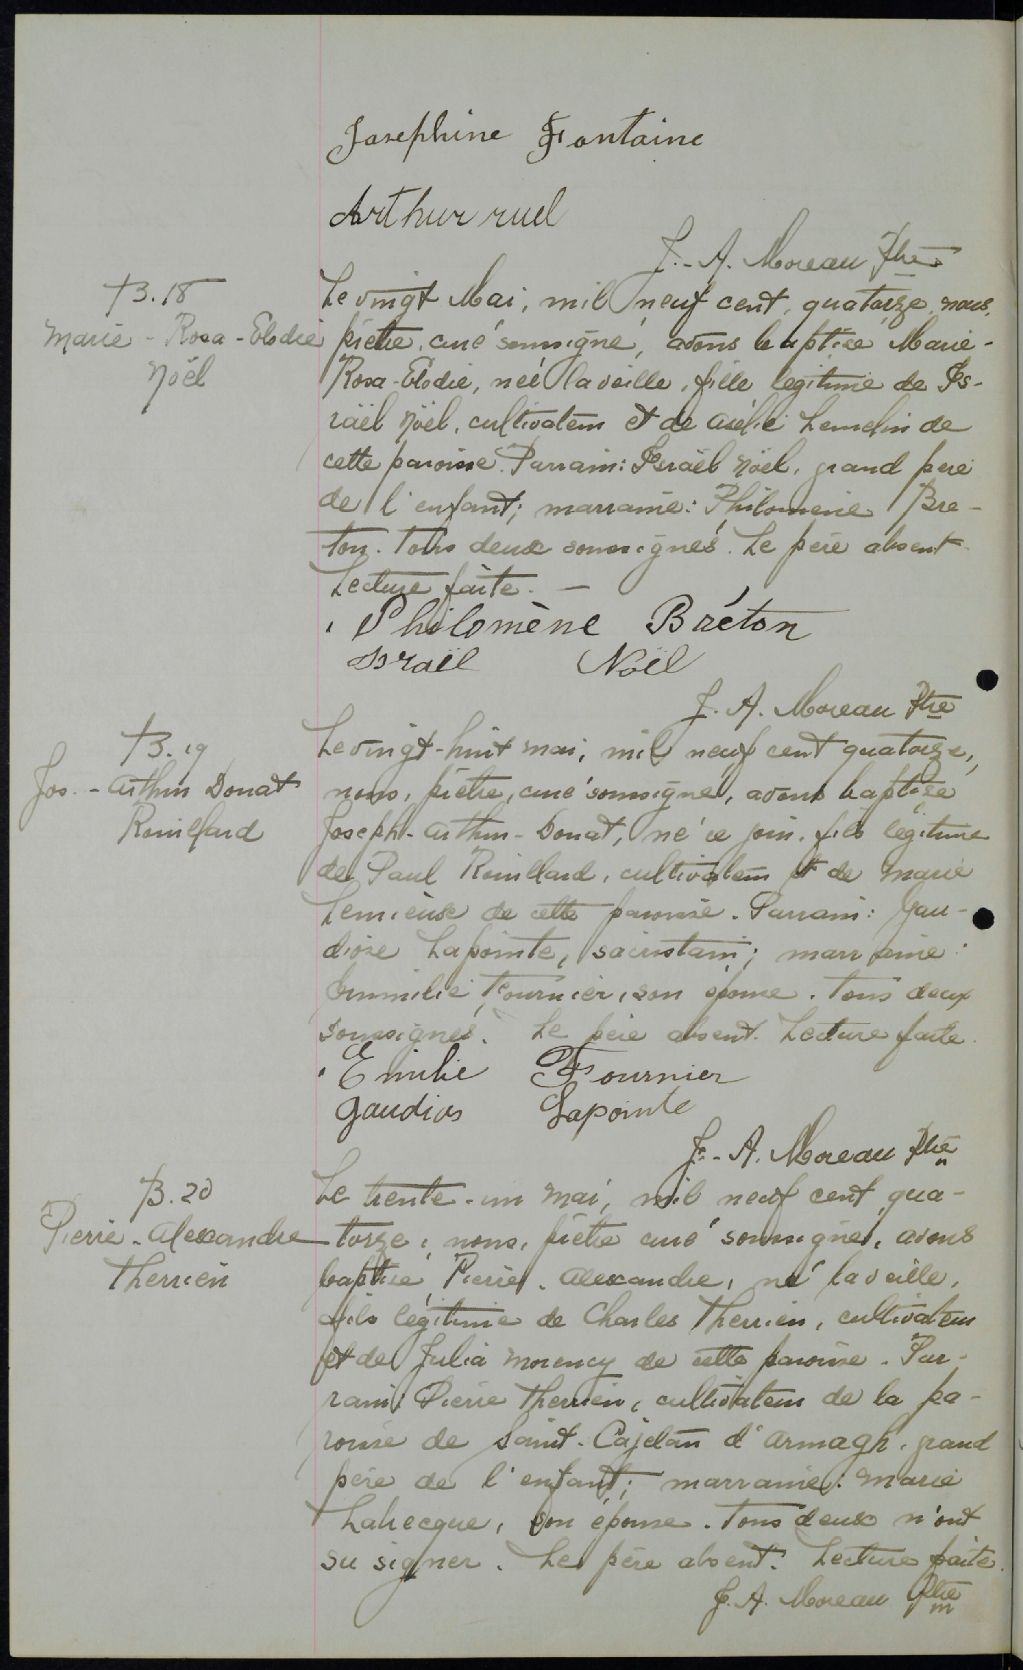 Josephine Fontaine
Arthur ruel
J.-A. Moreau Ptre
B. 18
Marie-Rosa-Elodie
Noël
Le vingt Mai, mil neuf cent quatorze, nous,
prêtre, curé soussigné, avons baptisé Marie-
Rosa-Elodie, née la veille, fille légitime de Is-
raël Noël, cultivateur et de Asélie Lemelin de
cette paroisse. Parrain: Israël Noël, grand père
de l'enfant; marraine: Philomène Bre-
ton. Tous deux soussignés. Le père absent.
Lecture faite. —
Philomène Bréton
Israël Noël
J. A. Moreau Ptre
B. 19
Jos.-Arthur Donat
Rouillard
Le vingt-huit mai, mil neuf cent quatorze,
nous, prêtre, curé soussigné, avons baptisé
Joseph-Arthur-Donat, né ce jour, fils légitime
de Paul Rouillard, cultivateur et de Marie
Lemieux de cette paroisse. Parrain: Gau-
diose Lapointe, sacristain; marraine:
Emilie Fournier, son épouse. Tous deux
soussignés. Le père absent. Lecture faite.
Emilie Fournier
Gaudios Lapointe
J.-A. Moreau Ptre
B. 20
Pierre-Alexandre
Therrien
Le trente-un mai, mil neuf cent qua-
torze, nous, prêtre curé soussigné, avons
baptisé Pierre-Alexandre, né la veille,
fils légitime de Charles Therrien, cultivateur
et de Julia Morency de cette paroisse. Par-
rain: Pierre Therrien, cultivateur de la pa-
roisse de Saint-Cajetan d'Armagh, grand
père de l'enfant; marraine: Marie
Labecque, son épouse. Tous deux n'ont
su signer. Le père absent. Lecture faite.
J. A. Moreau Ptre